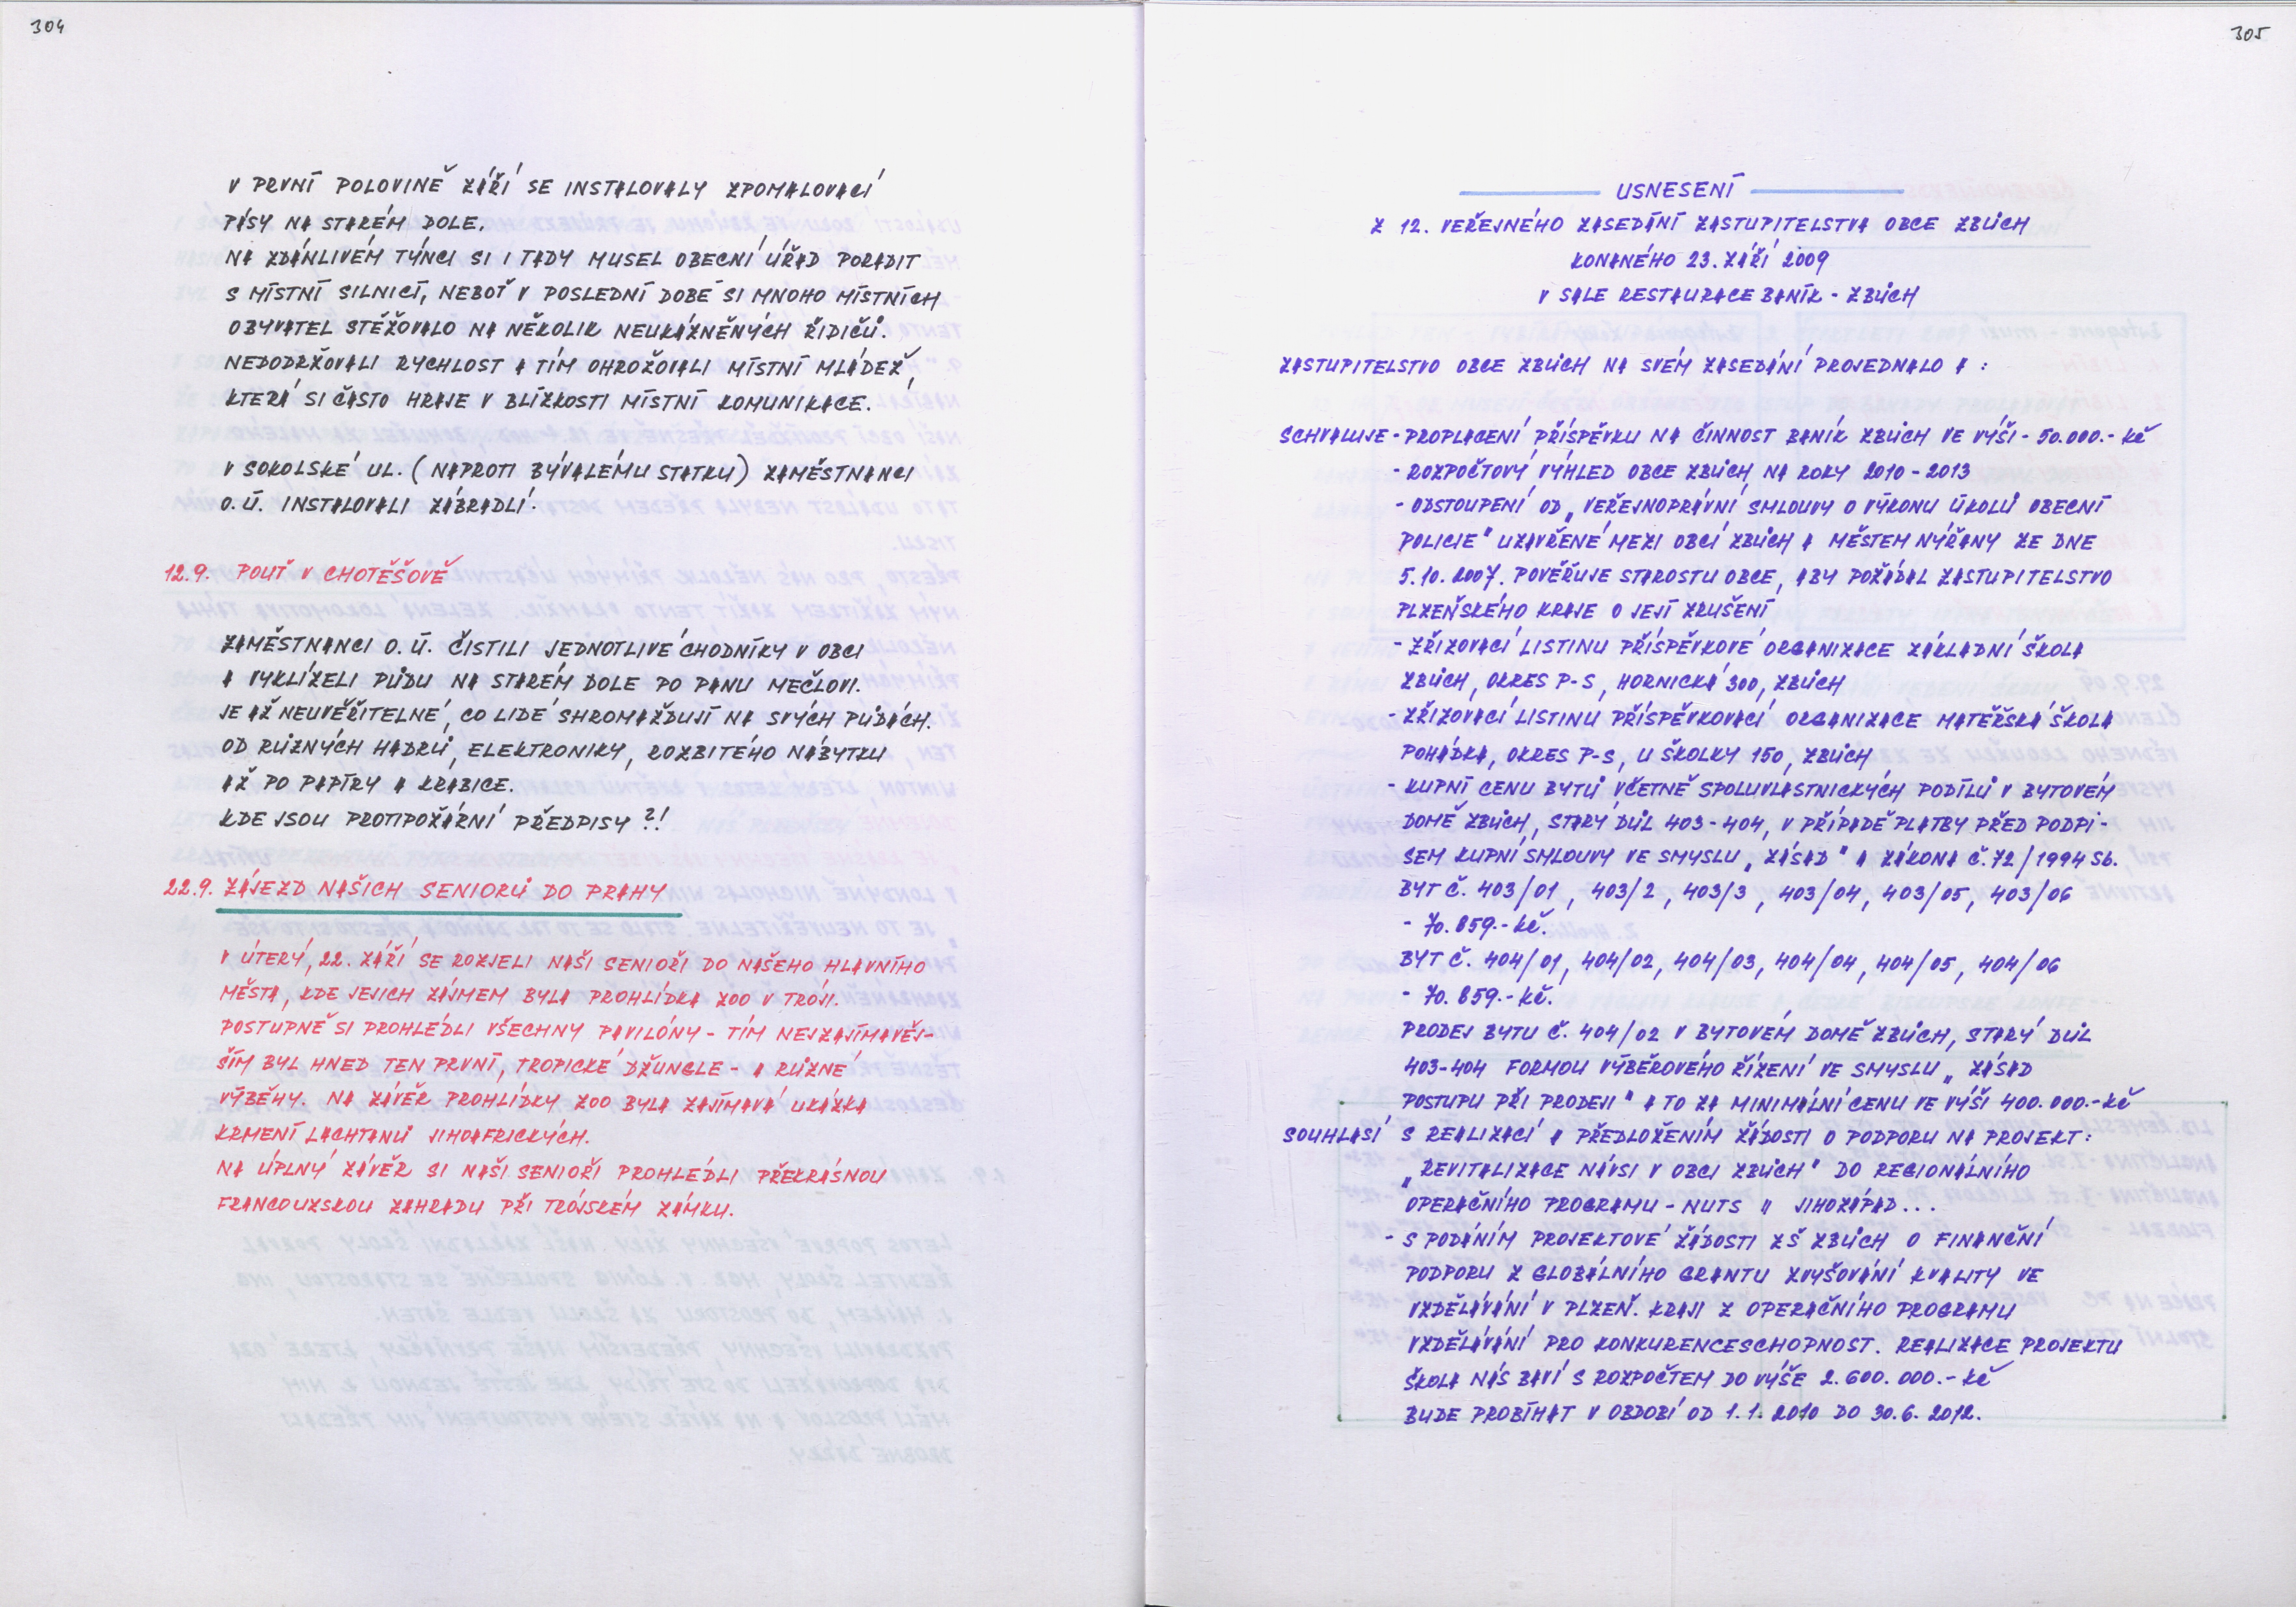 304
V PRVNÍ POLOVINĚ ZÁŘÍ SE INSTALOVALY ZPOMALOVACÍ
PÁSY NA STARÉM DOLE.
NA ZDÁNLIVÉM TÝNCI SI I TADY MUSEL OBECNÍ ÚŘAD PORADIT
S MÍSTNÍ SILNICÍ, NEBOŤ V POSLEDNÍ DOBĚ SI MNOHO MÍSTNÍCH
OBYVATEL STĚŽOVALO NA NĚKOLIK NEUKÁZNĚNÝCH ŘIDIČŮ.
NEDODRŽOVALI RYCHLOST A TÍM OHROŽOVALI MÍSTNÍ MLÁDEŽ,
KTERÁ SI ČASTO HRAJE V BLÍZKOSTI MÍSTNÍ KOMUNIKACE.
V SOKOLSKÉ UL. (NAPROTI BÝVALÉMU STATKU) ZAMĚSTNANCI
O.Ú. INSTALOVALI ZÁBRADLÍ.
12.9. POUŤ V CHOTĚŠOVĚ
ZAMĚSTNANCI O.Ú. ČISTILI JEDNOTLIVÉ CHODNÍKY V OBCI
A VYKLÍZELI PŮDU NA STARÉM DOLE PO PANU MEČLOVI.
JE AŽ NEUVĚŘITELNÉ, CO LIDÉ SHROMAŽĎUJÍ NA SVÝCH PŮDÁCH.
OD RŮZNÝCH HADRŮ, ELEKTRONIKY, ROZBITÉHO NÁBYTKU
AŽ PO PAPÍRY A KRABICE.
KDE JSOU PROTIPOŽÁRNÍ PŘEDPISY ?!
22.9. ZÁJEZD NAŠICH SENIORŮ DO PRAHY
V ÚTERÝ, 22. ZÁŘÍ SE ROZJELI NAŠI SENIOŘI DO NAŠEHO HLAVNÍHO
MĚSTA, KDE JEJICH ZÁJMEM BYLA PROHLÍDKA ZOO V TRÓJI.
POSTUPNĚ SI PROHLÉDLI VŠECHNY PAVILÓNY - TÍM NEJZAJÍMAVĚJ-
ŠÍM BYL HNED TEN PRVNÍ, TROPICKÉ DŽUNGLE - A RŮZNÉ
VÝBĚHY. NA ZÁVĚR PROHLÍDKY ZOO BYLA ZAJÍMAVÁ UKÁZKA
KRMENÍ LACHTANŮ JIHOAFRICKÝCH.
NA ÚPLNÝ ZÁVĚR SI NAŠI SENIOŘI PROHLÉDLI PŘEKRÁSNOU
FRANCOUZSKOU ZAHRADU PŘI TRÓJSKÉM ZÁMKU.
305
USNESENÍ
Z 12. VEŘEJNÉHO ZASEDÁNÍ ZASTUPITELSTVA OBCE ZBŮCH
KONANÉHO 23. ZÁŘÍ 2009
V SALE RESTAURACE BANÍK - ZBŮCH
ZASTUPITELSTVO OBCE ZBŮCH NA SVÉM ZASEDÁNÍ PROJEDNALO A :
SCHVALUJE - PROPLACENÍ PŘÍSPĚVKU NA ČINNOST BANÍK ZBŮCH VE VÝŠI - 50.000.- Kč
- ROZPOČTOVÝ VÝHLED OBCE ZBŮCH NA ROKY 2010 - 2013
- ODSTOUPENÍ OD „VEŘEJNOPRÁVNÍ SMLOUVY O VÝKONU ÚKOLŮ OBECNÍ
POLICIE" UZAVŘENÉ MEZI OBCÍ ZBŮCH A MĚSTEM NÝŘANY ZE DNE
5.10.2007. POVĚŘUJE STAROSTU OBCE, ABY POŽÁDAL ZASTUPITELSTVO
PLZEŇSKÉHO KRAJE O JEJÍ ZRUŠENÍ
- ZŘIZOVACÍ LISTINU PŘÍSPĚVKOVÉ ORGANIZACE ZÁKLADNÍ ŠKOLA
ZBŮCH, OKRES P-S, HORNICKÁ 300, ZBŮCH
- ZŘIZOVACÍ LISTINU PŘÍSPĚVKOVACÍ ORGANIZACE MATEŘSKÁ ŠKOLA
POHÁDKA, OKRES P-S, U ŠKOLKY 150, ZBŮCH
- KUPNÍ CENU BYTŮ VČETNĚ SPOLUVLASTNICKÝCH PODÍLŮ V BYTOVÉM
DOMĚ ZBŮCH, STARÝ DŮL 403-404, V PŘÍPADĚ PLATBY PŘED PODPI-
SEM KUPNÍ SMLOUVY VE SMYSLU „ZÁSAD" A ZÁKONA Č. 72/1994 Sb.
BYT Č. 403/01, 403/2, 403/3, 403/04, 403/05, 403/06
- 70.859.- Kč.
BYT Č. 404/01, 404/02, 404/03, 404/04, 404/05, 404/06
- 70.859.- Kč.
PRODEJ BYTU Č. 404/02 V BYTOVÉM DOMĚ ZBŮCH, STARÝ DŮL
403-404 FORMOU VÝBĚROVÉHO ŘÍZENÍ VE SMYSLU „ZÁSAD
POSTUPU PŘI PRODEJI" A TO ZA MINIMÁLNÍ CENU VE VÝŠÍ 400.000.- Kč
SOUHLASÍ S REALIZACÍ A PŘEDLOŽENÍM ŽÁDOSTI O PODPORU NA PROJEKT:
„REVITALIZACE NÁVSI V OBCI ZBŮCH" DO REGIONÁLNÍHO
OPERAČNÍHO PROGRAMU - NUTS II JIHOZÁPAD...
- S PODÁNÍM PROJEKTOVÉ ŽÁDOSTI ZŠ ZBŮCH O FINANČNÍ
PODPORU Z GLOBÁLNÍHO GRANTU ZVYŠOVÁNÍ KVALITY VE
VZDĚLÁVÁNÍ V PLZEŇ. KRAJI Z OPERAČNÍHO PROGRAMU
VZDĚLÁVÁNÍ PRO KONKURENCESCHOPNOST. REALIZACE PROJEKTU
ŠKOLA NÁS BAVÍ S ROZPOČTEM DO VÝŠE 2.600.000.- Kč
BUDE PROBÍHAT V OBDOBÍ OD 1.1.2010 DO 30.6.2012.